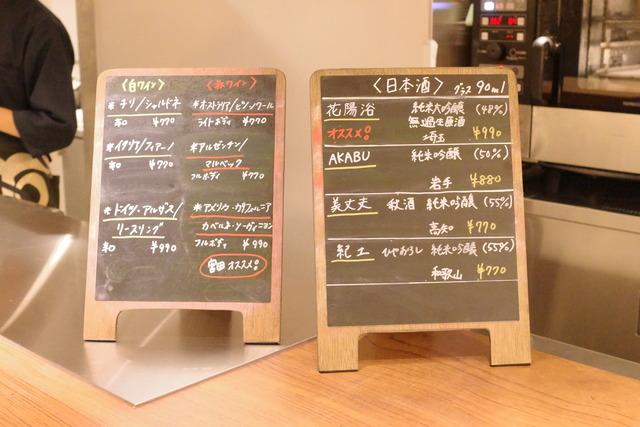 〈白ワイン〉
* チリ/シャルドネ
辛口 ¥770
* イタリア/フィアーノ
辛口 ¥770
* ドイツ・アルザス/
リースリング
辛口 ¥990
〈赤ワイン〉
* オーストラリア/ピノ・ノワール
ライトボディ ¥770
* アルゼンチン/
マルベック
フルボディ ¥770
* アメリカ・カリフォルニア
カベルネ・ソーヴィニヨン
フルボディ ¥990
オススメ!
〈日本酒〉 グラス 90ml
花陽浴 純米大吟醸 (48%)
オススメ! 無過生原酒
埼玉 ¥990
AKABU 純米吟醸 (50%)
岩手 ¥880
美丈夫 秋酒 純米吟醸 (55%)
高知 ¥770
紀土 ひやおろし 純米吟醸 (55%)
和歌山 ¥770